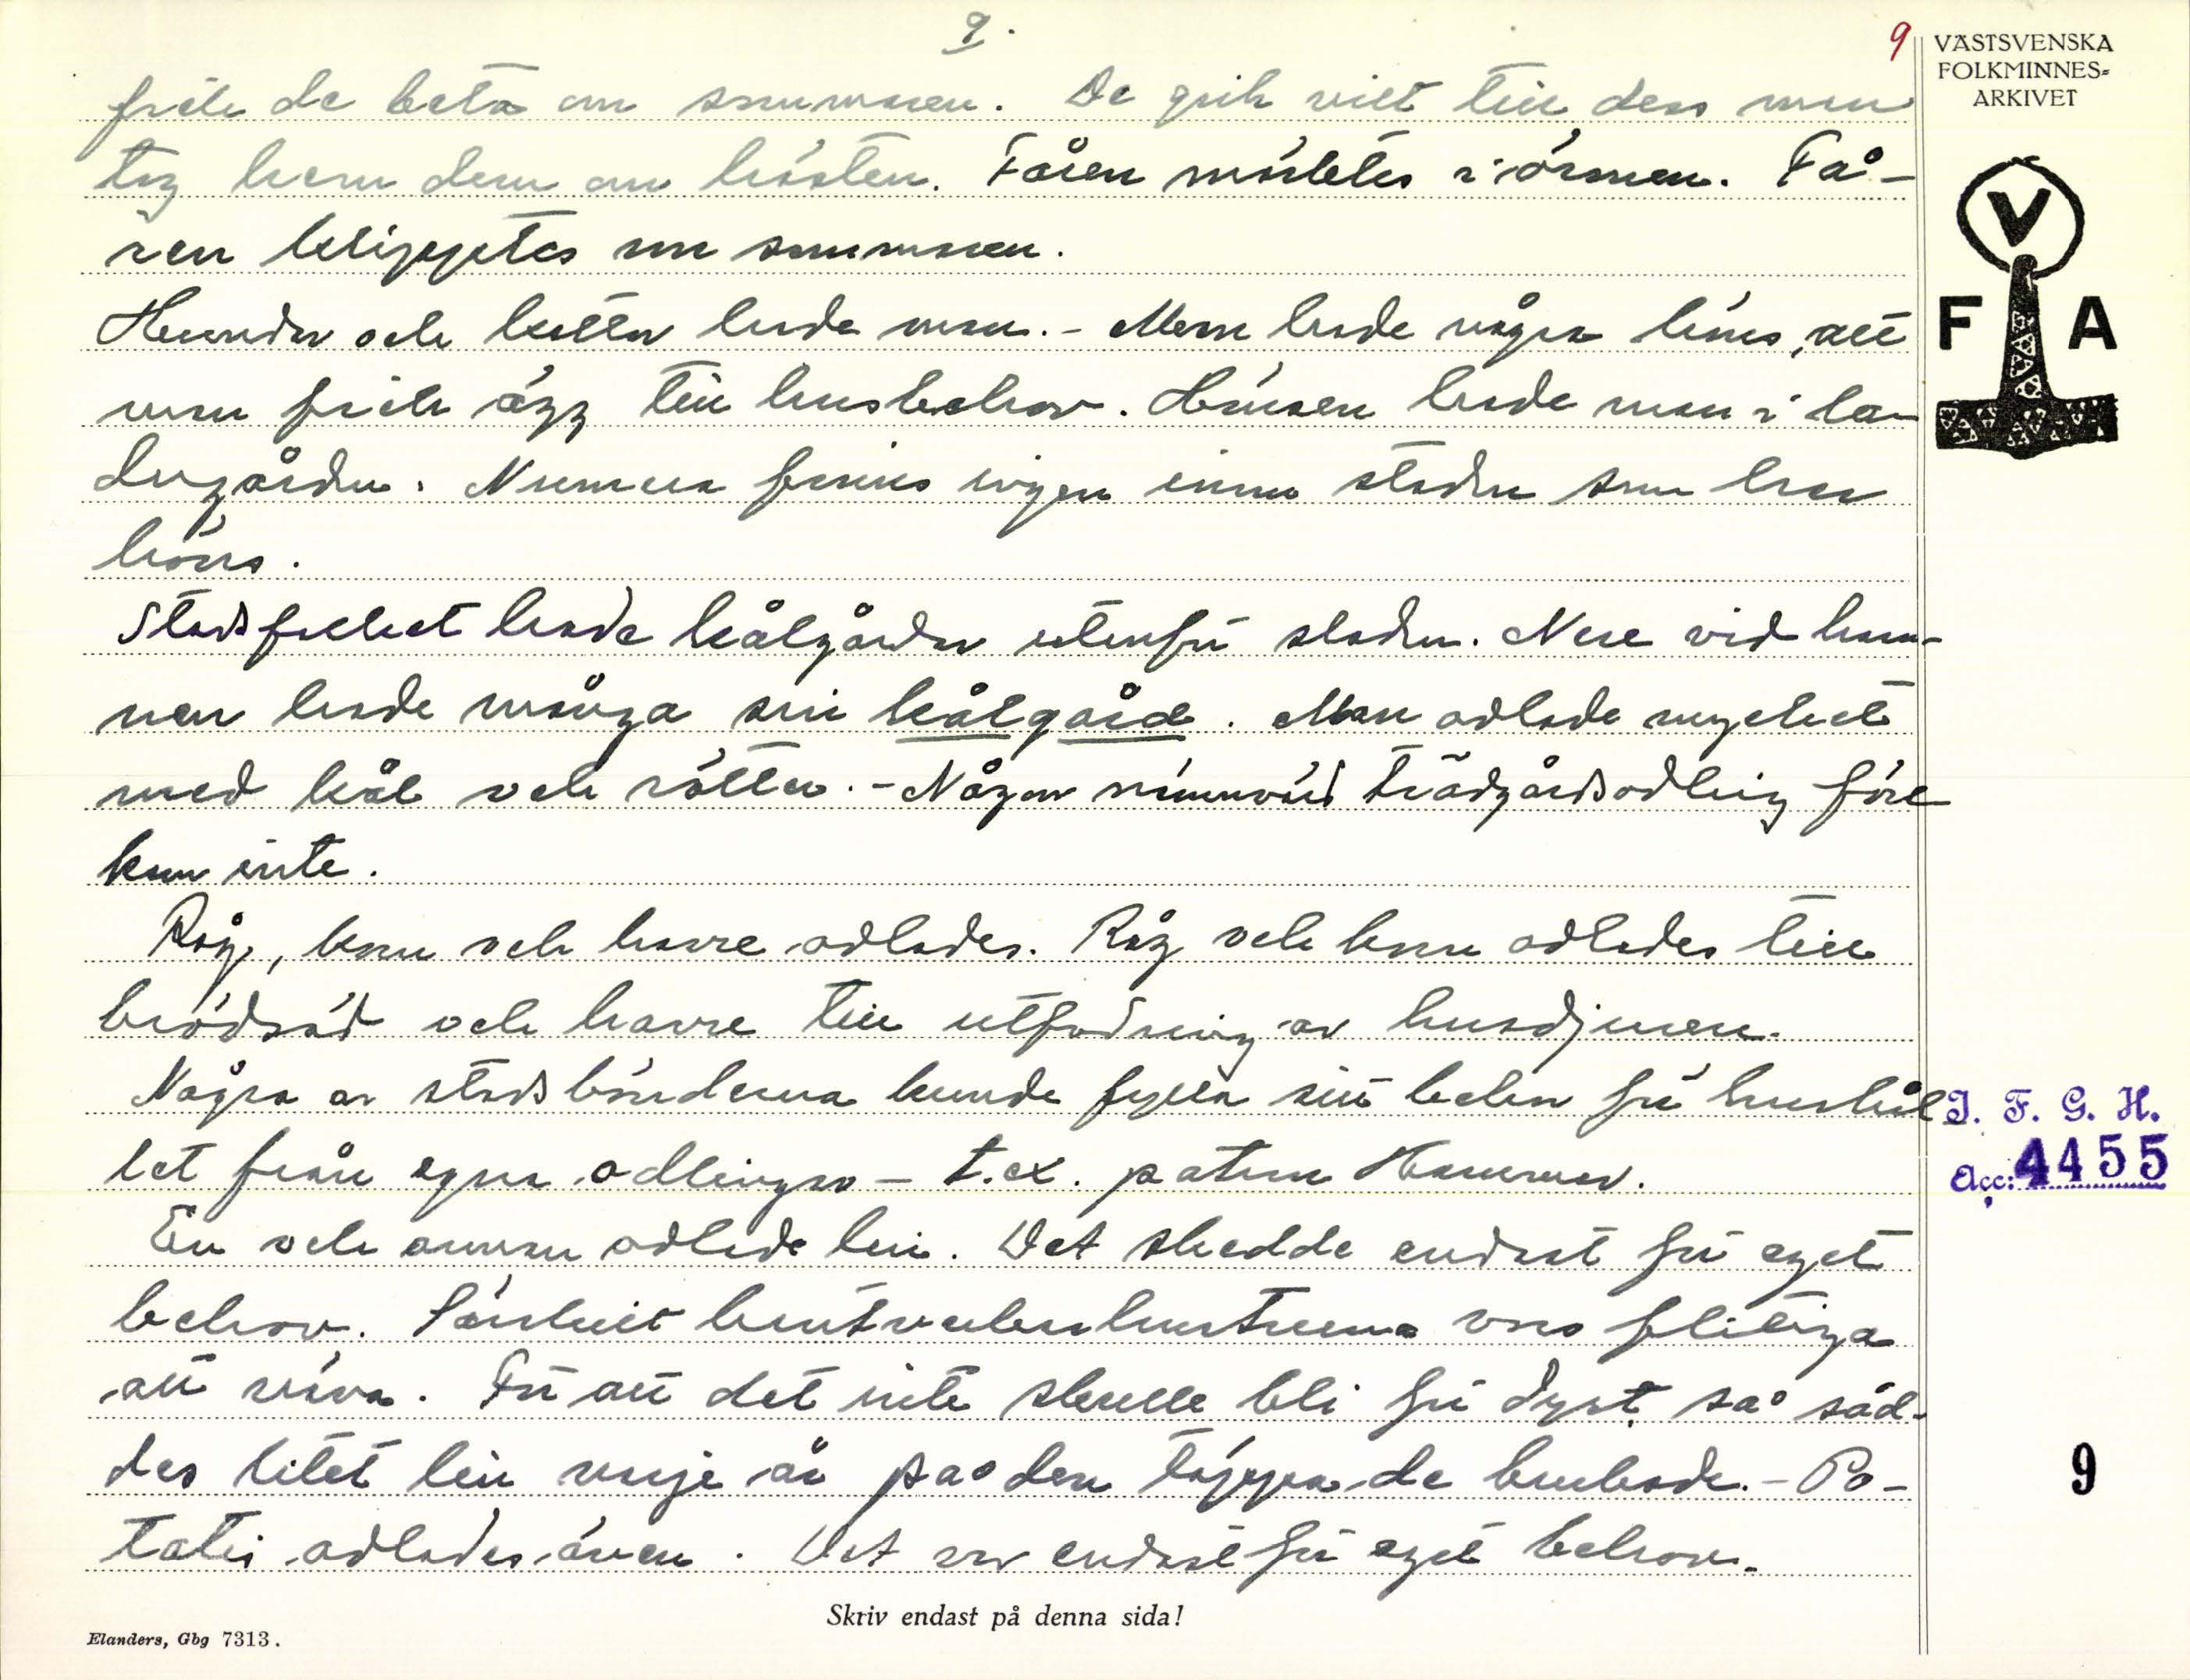 9.
9
VÄSTSVENSKA
FOLKMINNES-
ARKIVET
V
F A
fick de beta om sommaren. De gick vilt till dess man
tog hem dem om hösten. Fåren märktes i öronen. Få-
ren klipptes om sommaren.
Hundar och kattor hade man. - Man hade några höns, att
man fick ägg till husbehov. Hönsen hade man i la-
dugården. Numera finns ingen inne i staden som har
höns.
Stadsfolket hade kålgårdar utanför staden. Nere vid ham-
nen hade många sin kålgård. Man odlade mycket
med kål och rötter. - Någon nämnvärd trädgårdsodling före
kom inte.
Råg, korn och havre odlades. Råg och korn odlades till
brödsäd och havre till utfodring av husdjuren.
Några av stadsbönderna kunde fylla sitt behov för hushål
let från egna odlingar - t.ex. patron Hammar.
En och annan odlade lin. Det skedde endast för eget
behov. Särskilt hantverkarhustruerna voro flitiga
att väva. För att det inte skulle bli för dyrt, så såd-
des litet lin varje år på den täppa de brukade. - Po-
tatis odlades även. Det var endast för eget behov.
J. F. G. H.
Acc: 4455
9
Skriv endast på denna sida!
Elanders, Gbg 7313.